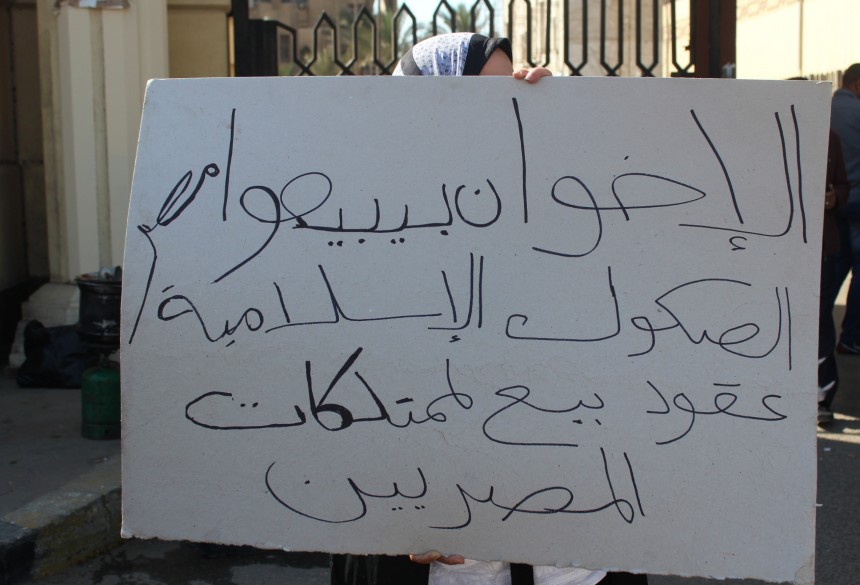 الإخوان بيبيعوا مصر
الصكوك الإسلامية
عقود بيع لممتلكات
المصريين